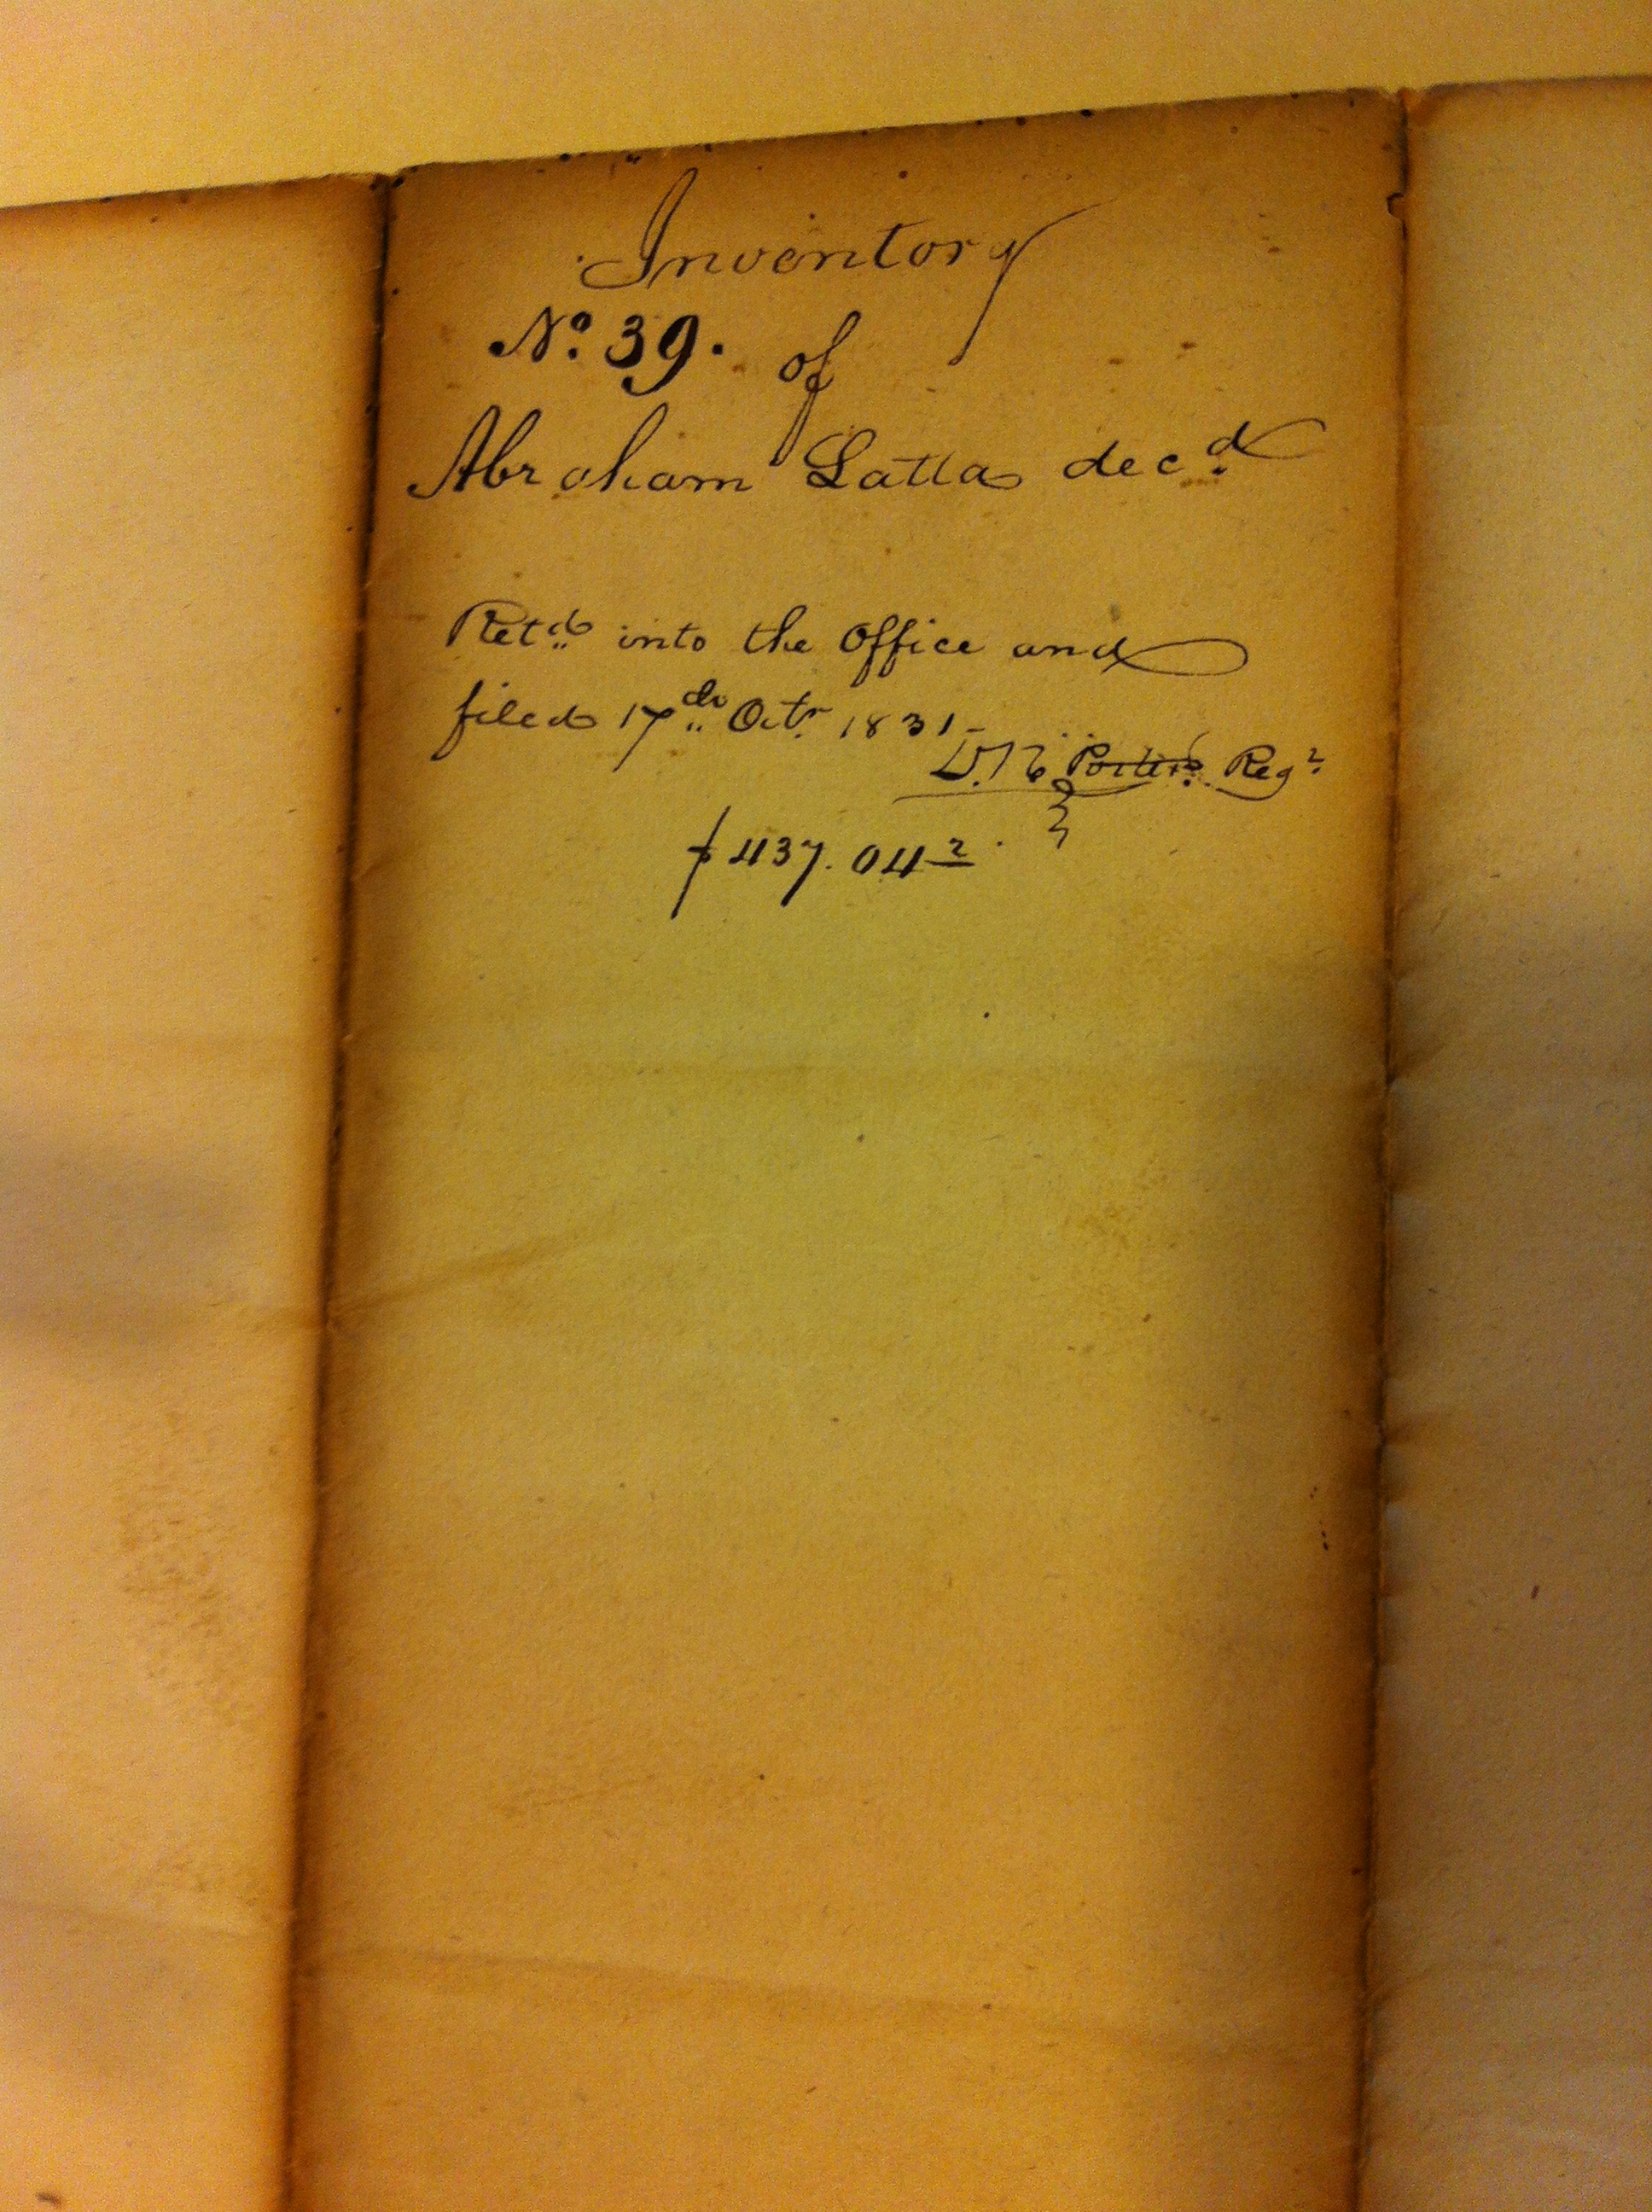 Inventory
No. 39. of
Abraham Latta decd
Retd into the Office and
filed 17th Octr 1831–
D. R. Porter Regr
$437.04 2